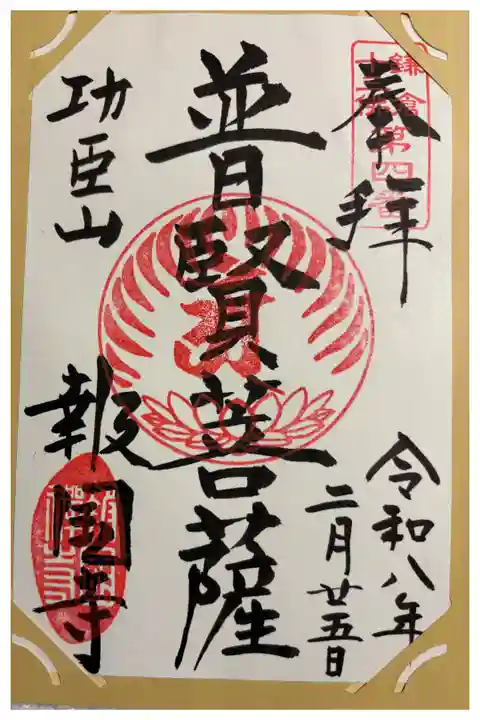 鎌倉
十三佛第四番
奉拝
令和八年
二月廿五日
普賢菩薩
功臣山
報國寺